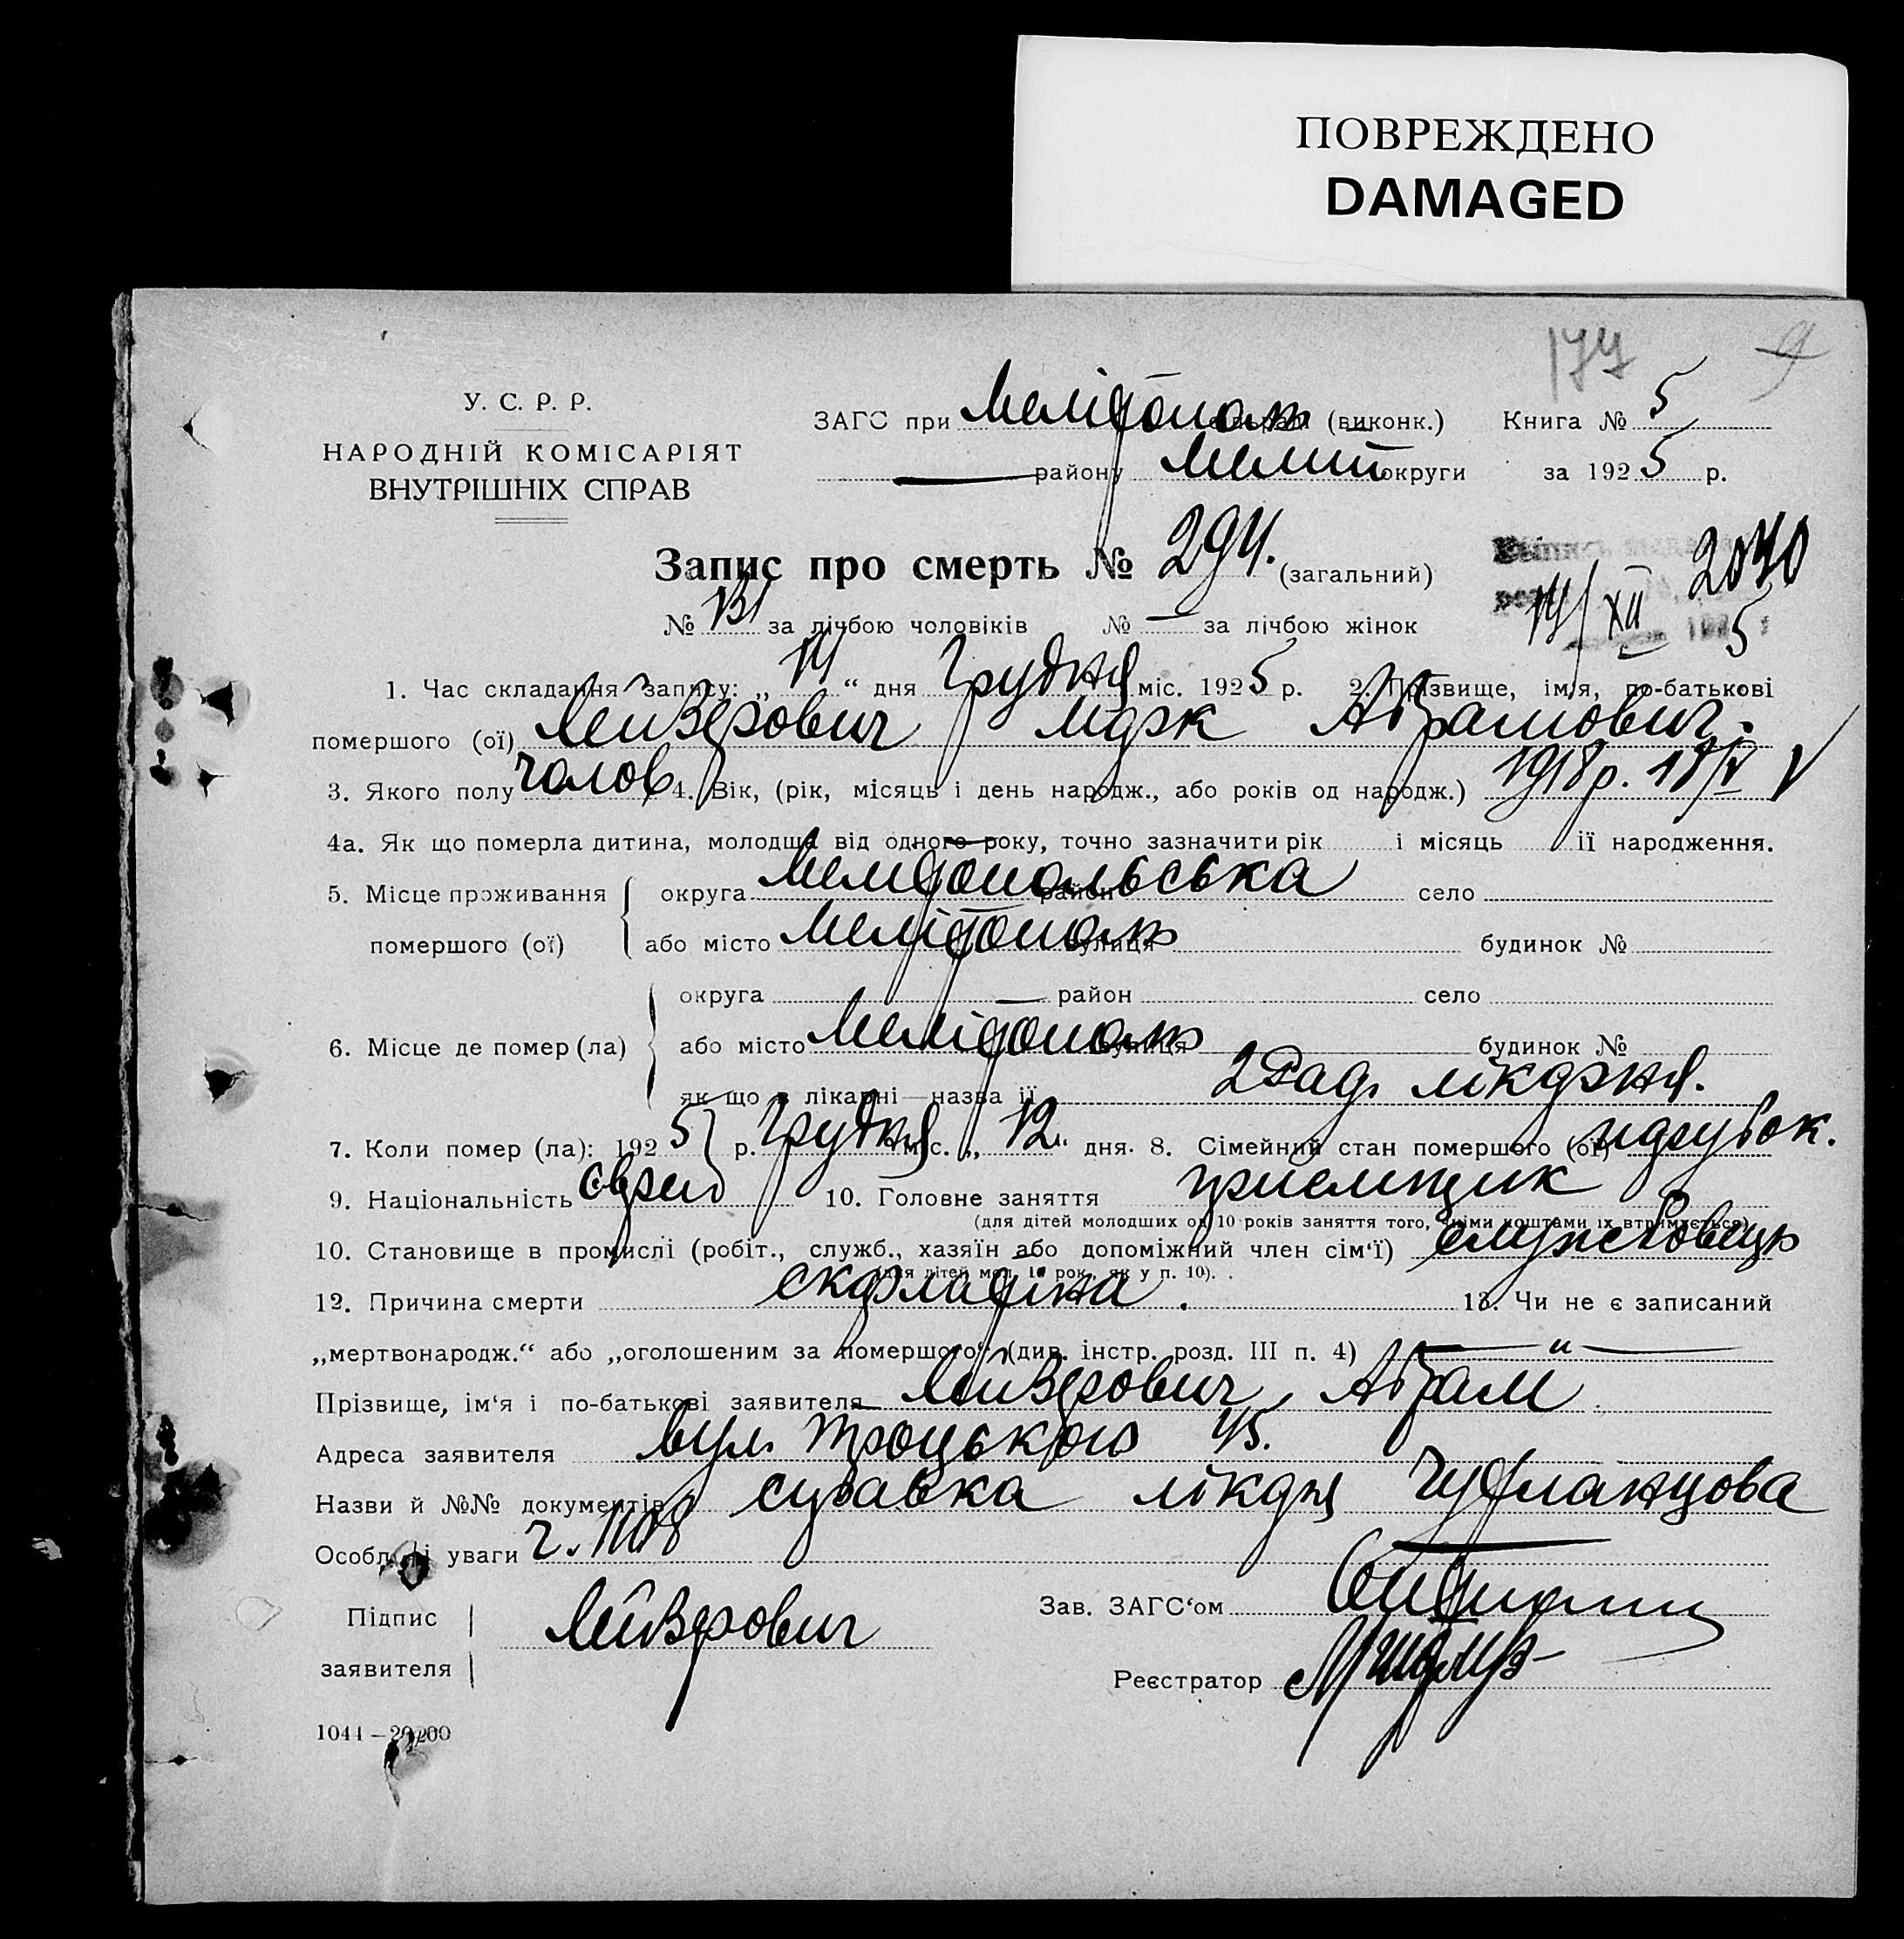 ПОВРЕЖДЕНО
DAMAGED
177 9
У. С. Р. Р.
НАРОДНІЙ КОМІСАРІЯТ
ВНУТРІШНІХ СПРАВ
ЗАГС при Мелітополь (виконк.) Книга № 5
району Меліт округи за 1925 р.
Запис про смерть № 294. (загальний)
Выпись 2040
14/XII 5
№ 131 за лічбою чоловіків № — за лічбою жінок
1. Час складання запису: „14“ дня Грудня міс. 1925 р. 2. Прізвище, ім'я, по-батькові
помершого (ої) Лейзерович Марк Абрамович.
3. Якого полу чолов 4. Вік, (рік, місяць і день народж., або років од народж.) 1918 р. 18/V V
4а. Як що померла дитина, молодша від одного року, точно зазначити рік і місяць її народження.
5. Місце проживання округа Мелітопольська район село
помершого (ої) або місто Мелітополь вулиця будинок №
округа — район село
6. Місце де помер (ла) або місто Мелітополь вулиця будинок №
як що в лікарні—назва її 2 Рад. лікарня.
7. Коли помер (ла): 1925 р. Грудня міс. „12“ дня. 8. Сімейний стан помершого (ої) парубок.
9. Національність єврей 10. Головне заняття приємщик
(для дітей молодших од 10 років заняття того, чиїми коштами їх втримується)
10. Становище в промислі (робіт., служб., хазяїн або допоміжний член сім'ї) служковець
(для дітей мол. 10 рок., як у п. 10).
12. Причина смерти скарлатина. 13. Чи не є записаний
„мертвонародж.“ або „оголошеним за помершого“ (див. інстр. розд. III п. 4) — „ —
Прізвище, ім'я і по-батькові заявителя Лейзерович, Абрам
Адреса заявителя вул. Троцького 45.
Назви й №№ документів лікаря
Особливі уваги ч. 1108
Підпис
заявителя
Лейзерович
Зав. ЗАГС'ом
Реєстратор
1044—20200